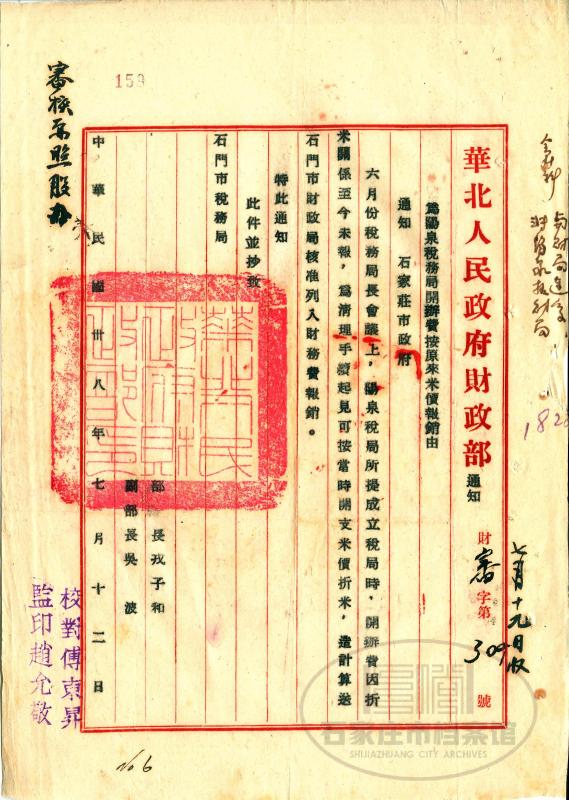 華北人民政府財政部 通知 財審字第309號
為陽泉稅務局開辦費按原來米價報銷由
通知 石家莊市政府
六月份稅務局長會議上，陽泉稅局所提成立稅局時，開辦費因折
米關係至今未報，為清理手續起見可按當時開支米價折米，造計算送
石門市財政局核准列入財務費報銷。
特此通知
此件並抄致
石門市稅務局
部長戎子和
副部長吳波
中華民國卅八年七月十二日
七月十九日收
審核票照股办
159
182
校對傅東昇
監印趙允敬
No 6
石家庄市档案馆
SHIJIAZHUANG CITY ARCHIVES